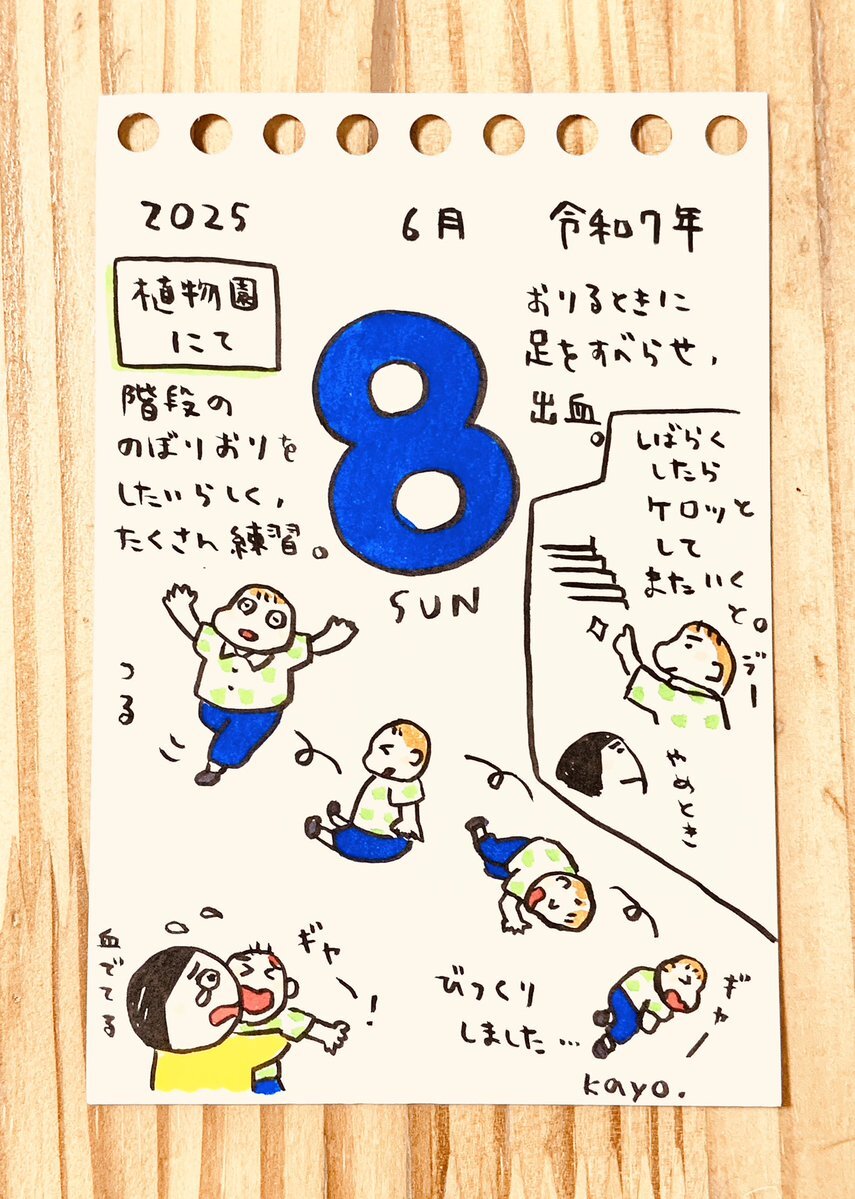 2025
6月
令和7年
植物園
にて
8
SUN
階段の
のぼりおりを
したいらしく,
たくさん練習。
おりるときに
足をすべらせ,
出血。
しばらく
したら
ケロッと
して
またいく
と。
ジー
やめとき
つる
血でてる
ギャー!
びっくり
しました…
ギャー
kayo.